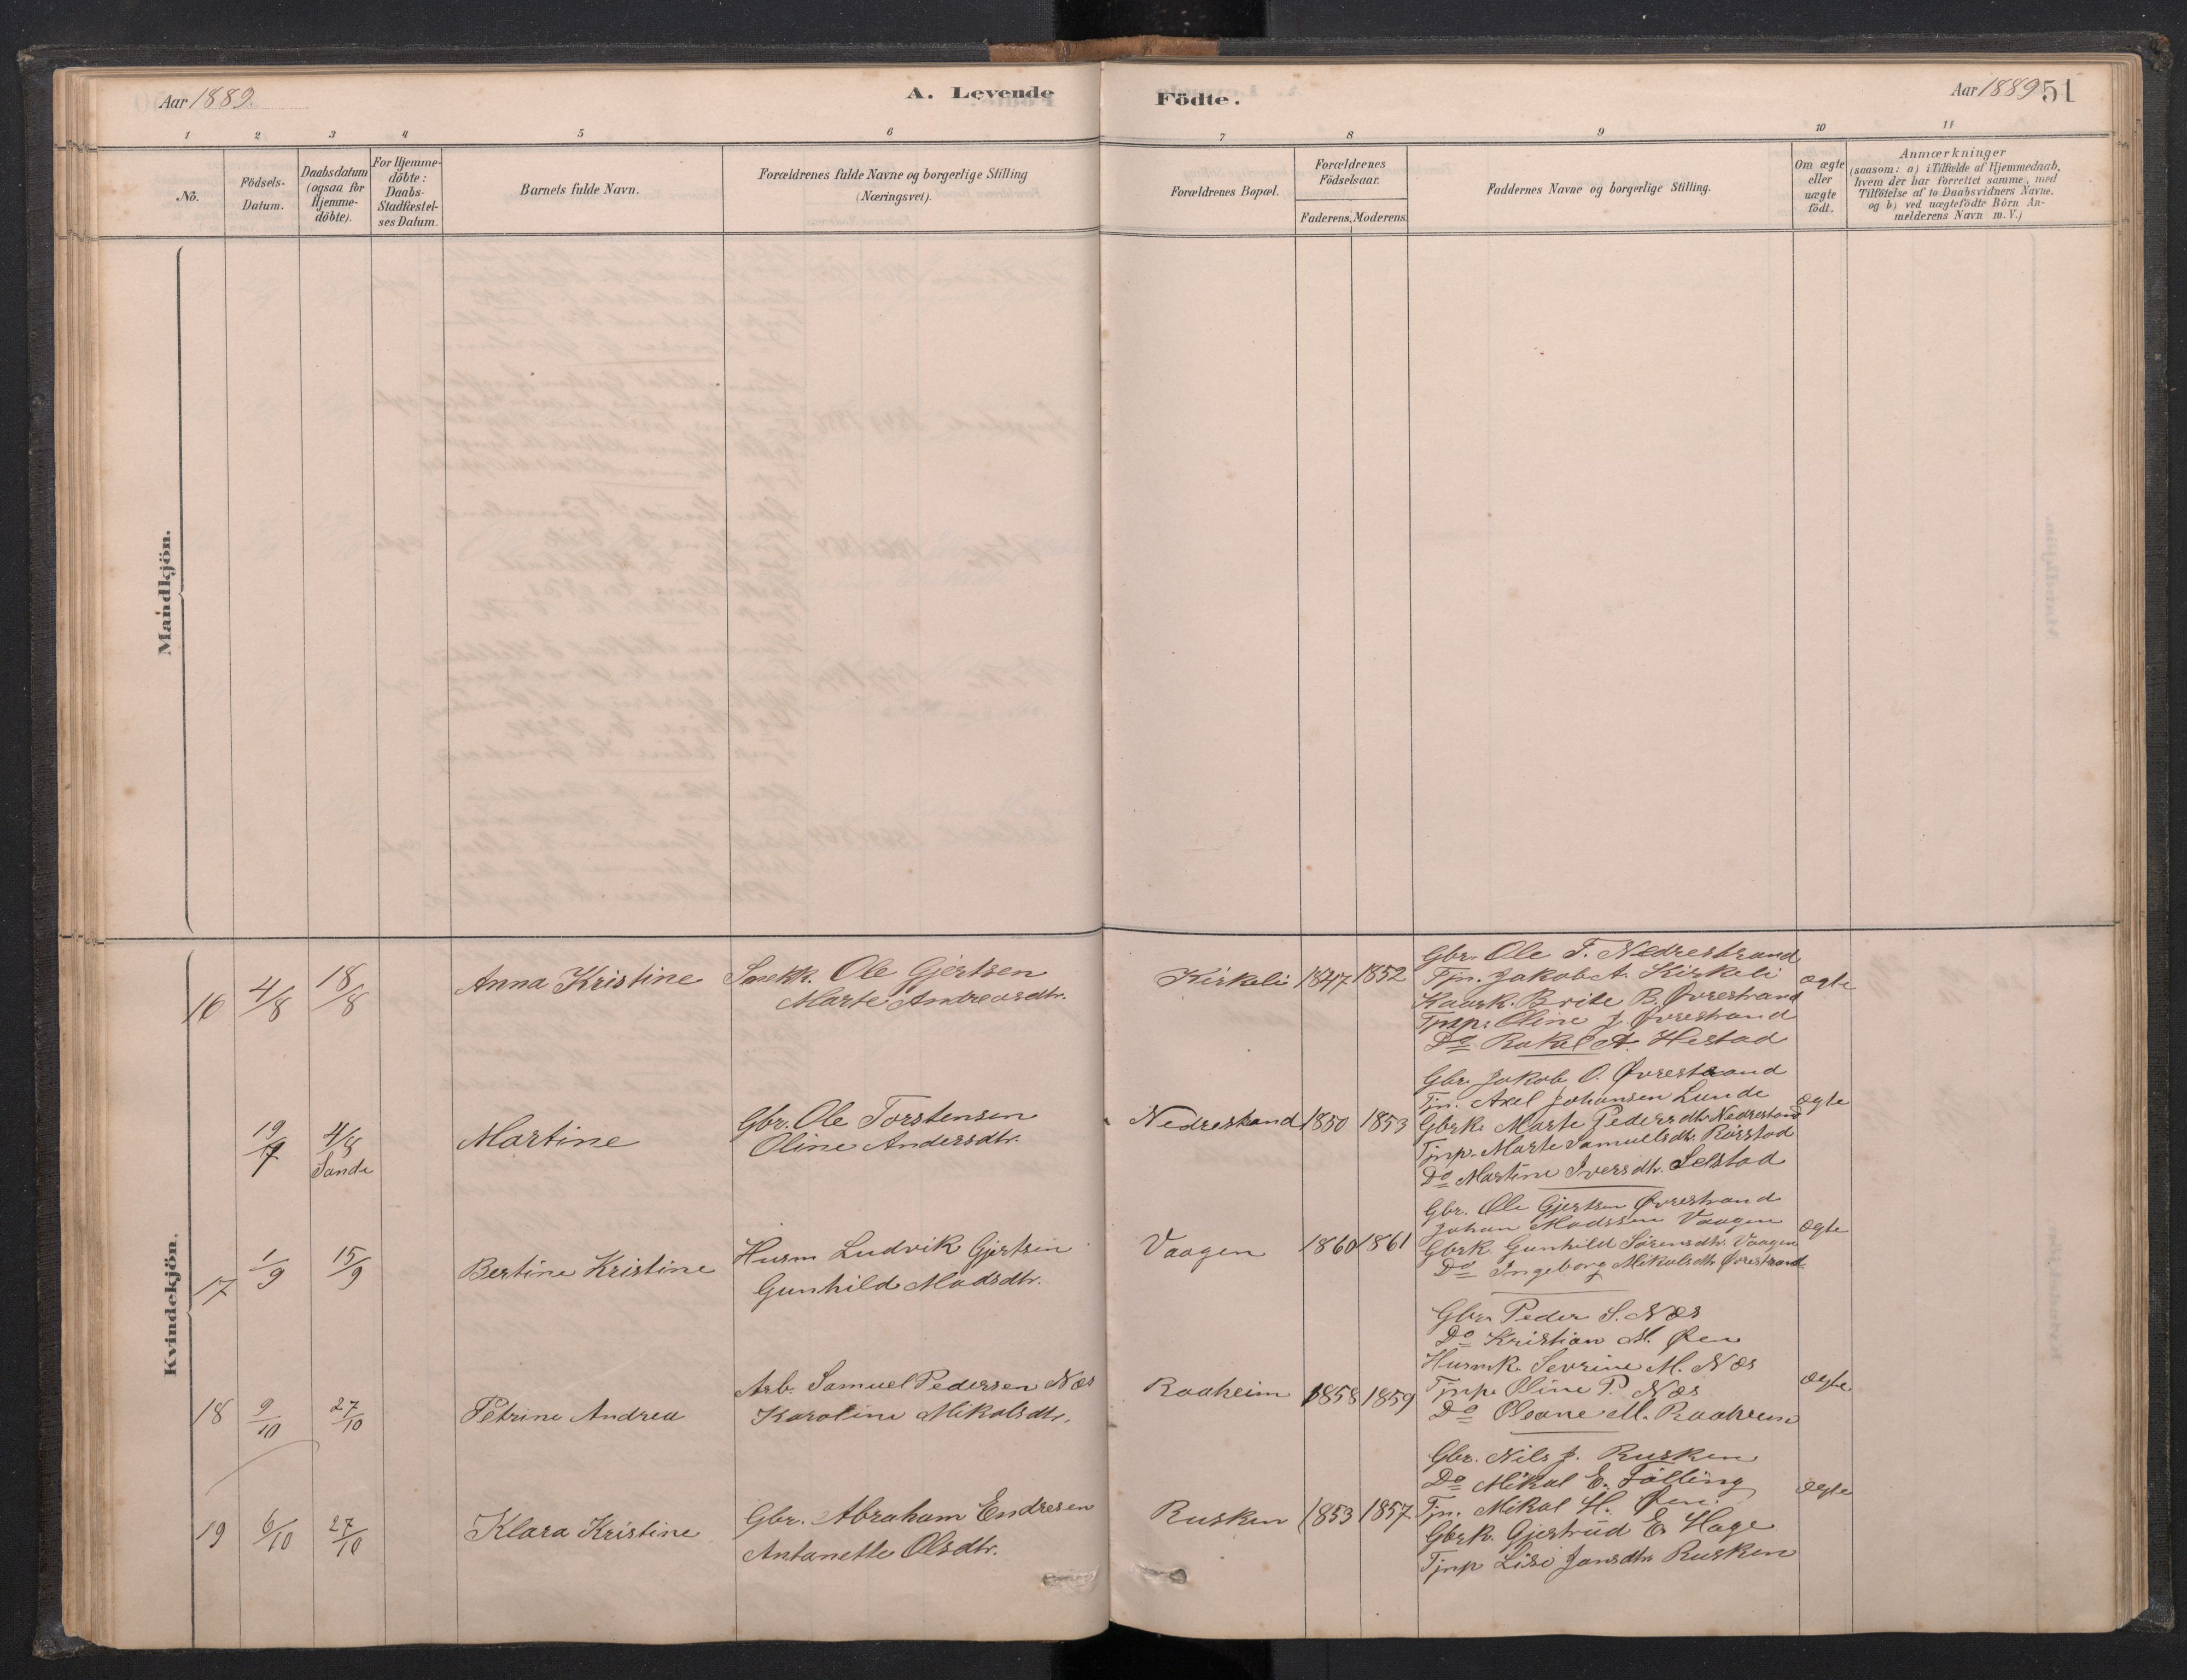 Aar 1889.
A. Levende
Födte.
Aar 1889 51
1 2 3 4 5 6 7 8 9 10 11
Nö.
Födsels-
Datum.
Daabsdatum
(ogsaa for
Hjemme-
döbte).
For Hjemme-
döbte:
Daabs-
Stadfæstel-
ses Datum.
Barnets fulde Navn.
Forældrenes fulde Navne og borgerlige Stilling
(Næringsvei).
Forældrenes Bopæl.
Forældrenes
Födselsaar.
Faderens. Moderens.
Faddernes Navne og borgerlige Stilling.
Om ægte
eller
uægte
födt.
Anmærkninger
(saasom: a) i Tilfælde af Hjemmedaab,
hvem der har forrettet samme, med
Tilföielse af to Daabsvidners Navne.
og b) ved uægtefödte Börn An-
melderens Navn m.V.)
Mandkjön.
Kvindekjön.
16 4/8 18/8 Anna Kristine
Snekk. Ole Gjertsen
Marte Andreasdtr.
Kirkeli 1847 1852
Gbr. Ole T. Nedrestrand
Tjn. Jakob A. Kirkeli
Kaark. Brite B. Øvrestrand
Tjnp. Oline J. Øvrestrand
Do Rakel A. Hestad
ægte
19/7 4/8
Sande
Martine
Gbr. Ole Torstensen
Oline Andersdtr.
Nedrestrand 1850 1853
Gbr. Jakob O. Øvrestrand
Tjn. Axel Johansen Lunde
Gbrk. Marte Pedersdtr. Nedrestrand
Tjnp. Marte Samuelsdtr. Rørstad
Do Martine Iversdtr. Selstad
ægte
17 1/9 15/9 Bertine Kristine
Husm Ludvik Gjertsen
Gunhild Madsdtr.
Vaagen 1860 1861
Gbr. Ole Gjertsen Øvrestrand
Johan Madssen Vaagen
Gbrk. Gunhild Sørensdtr. Vaagen
Do Ingeborg Mikalsdtr Øvrestrand
ægte
18 9/10 27/10 Petrine Andrea
Arb. Samuel Pedersen Næs
Karoline Mikalsdtr.
Raaheim 1858 1859
Gbr. Peder S. Næs
Do Kristian M. Øen
Husmk. Sevrine M. Næs
Tjnp. Oline P. Næs
Do Oleane M. Raaheim
ægte
19 6/10 27/10 Klara Kristine
Gbr. Abraham Endresen
Antonette Olsdtr.
Rusken 1853 1857
Gbr. Nils J. Rusken
Do Mikal E. Tølling
Tjn. Mikal H. Øen.
Gbrk. Gjertrud E. Hage
Tjnp Lise Jansdtr Rusken
ægte